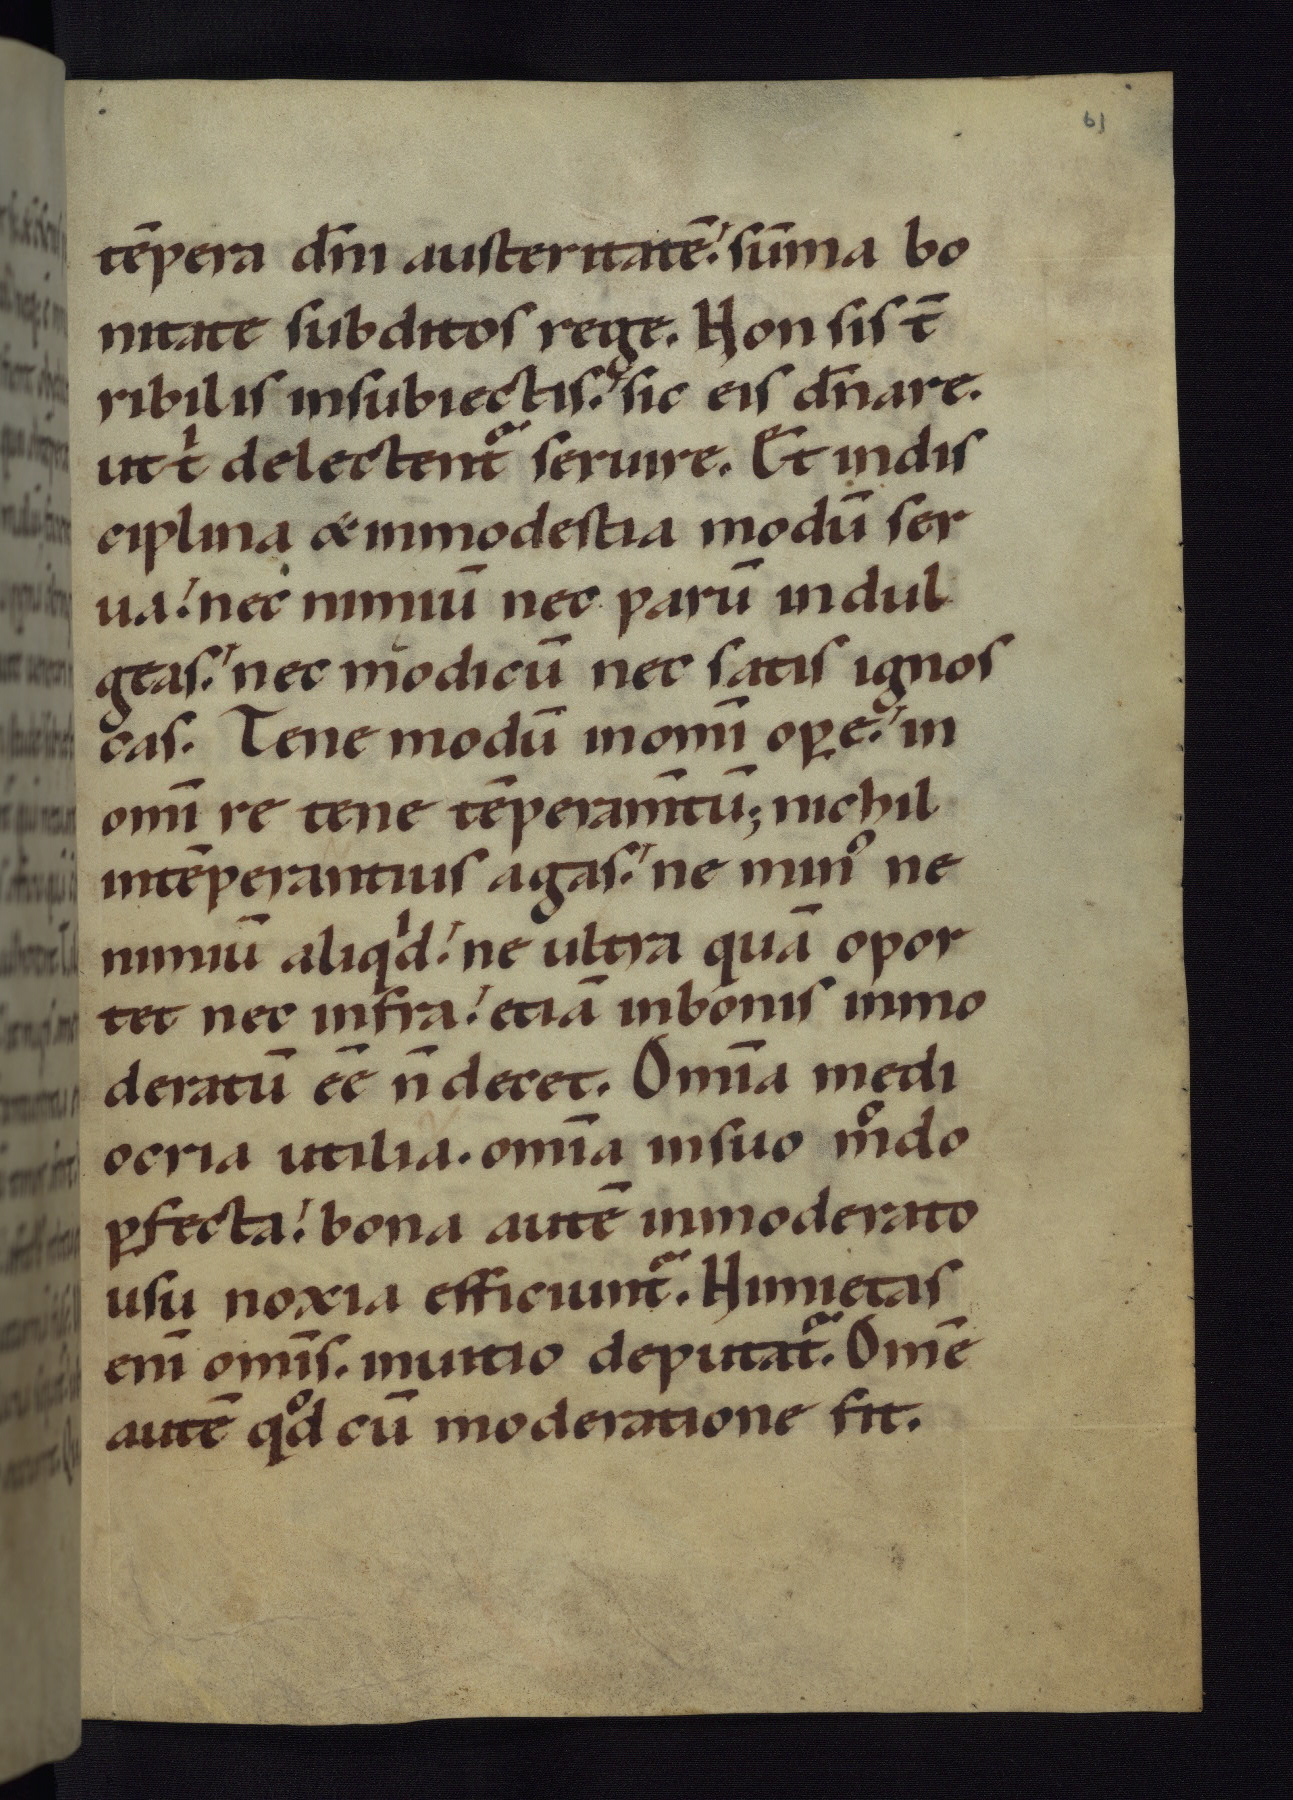 61
tēpera dm̄ austeritatē. sūma bo
nitate subditos rege. Non sis t̄
ribilis insubiectis. sic eis dn̄are.
ut tͥ delectent᷑ seruire. Et indis
ciplina & inmodestia modū ser
ua. nec nimiū nec parū indul
geas. nec modicū nec satis ignos
cas. Tene modū inomī oꝑe. in
omī re tene tēperam̄tū; nichil
intēperantius agas. ne minꝰ ne
nimiū aliqͥd. ne ultra quā opor
tet nec infra. etiā inbonis inmo
deratū eē n̄ decet. Omīa medi
ocria utilia. omīa insuo mͦdo
ꝑfecta. bona autē inmoderato
usu noxia efficiunt᷑. Nimietas
enī omīs. inuitio deputat᷑. Omē
autē qͦd cū moderatione fit.